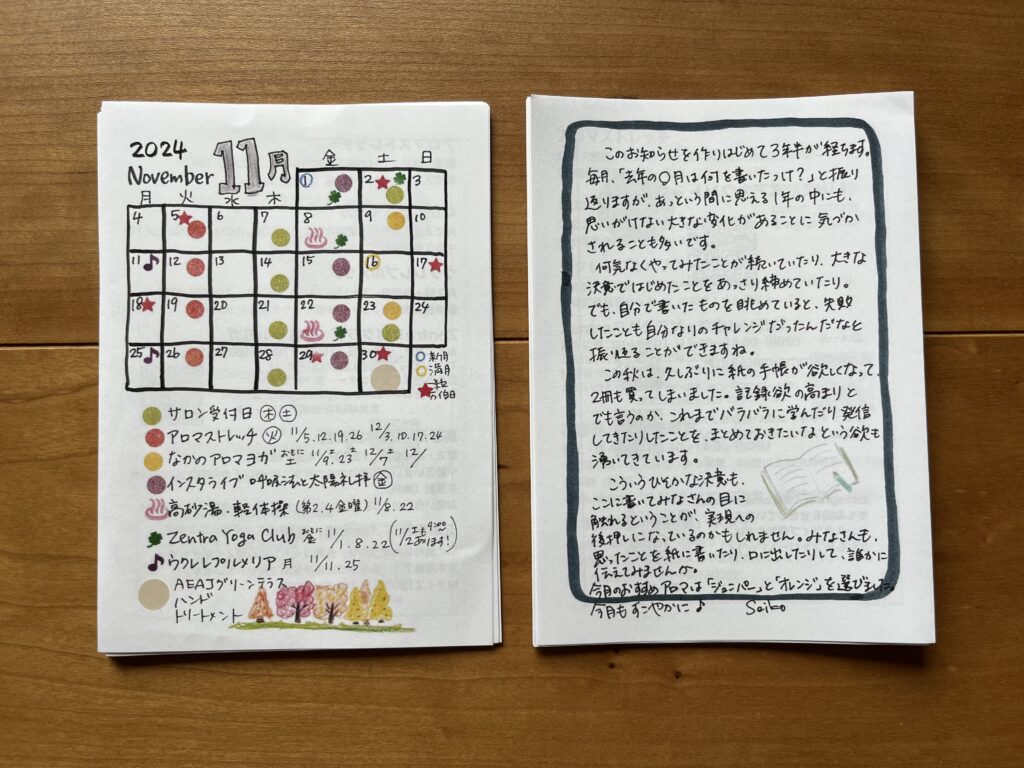 2024
November 11月
金 土 日
月 火 水 木
1 2 3
4 5 6 7 8 9 10
11 12 13 14 15 16 17
18 19 20 21 22 23 24
25 26 27 28 29 30
新月
満月
一粒
万倍日
サロン受付日 木 土
アロマストレッチ 火 11/5.12.19.26 12/3.10.17.24
なかのアロマヨガ おもに土 11/9.23 12/7 12/
インスタライブ 呼吸法と太陽礼拝 金
高砂湯.軽体操 (第2.4金曜) 11/8.22
Zentra Yoga Club おもに金 11/1.8.22 (11/2土も9:00~あります!)
ウクレレプルメリア 月 11/11.25
AEAJグリーンテラス
ハンド
トリートメント
このお知らせを作りはじめて3年半が経ちます。
毎月、「去年の○月は何を書いたっけ?」と振り
返りますが、あっという間に思える1年の中にも、
思いがけない大きな変化があることに気づか
されることも多いです。
何気なくやってみたことが続いていたり、大きな
決意ではじめたことをあっさり締めていたり。
でも、自分で書いたものを眺めていると、失敗
したことも自分なりのチャレンジだったんだなと
振り返ることができますね。
この秋は、久しぶりに紙の手帳が欲しくなって、
2冊も買ってしまいました。記録欲の高まりと
でも言うのか、これまでバラバラに学んだり発信
してきたりしたことを、まとめておきたいなという欲も
湧いてきています。
こういうひそかな決意も、
ここに書いてみなさんの目に
触れるということが、実現への
後押しになっているのかもしれません。みなさんも、
思ったことを紙に書いたり、口に出したりして、誰かに
伝えてみませんか。
今月のおすすめアロマは「ジュニパー」と「オレンジ」を選びました。
今月もすこやかに♪ Seiko